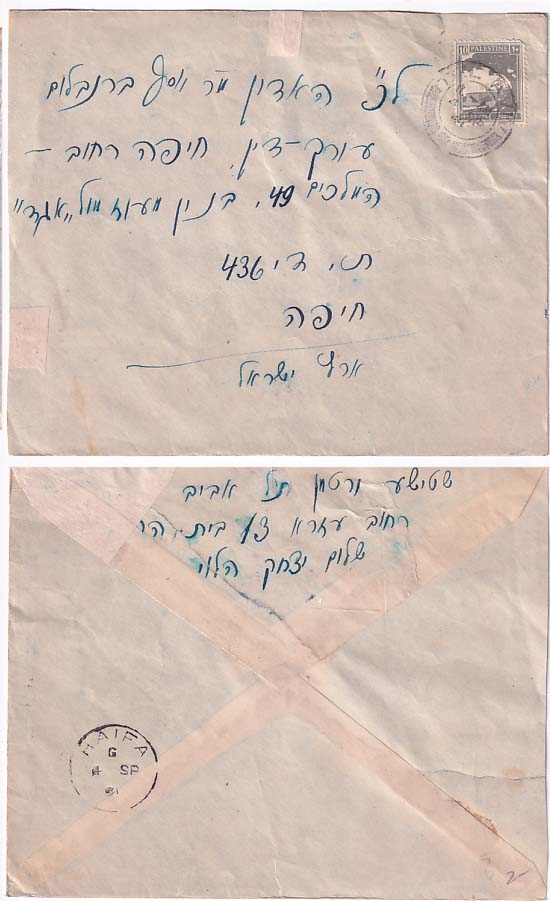 10 PALESTINE
לכ' האדון מר יוסף ברנבלום
עורך-דין, חיפה רחוב -
המלכים 49, בנין מעוז מול "אגד"
ת. ד. 436
חיפה
ארץ ישראל
תל אביב
רחוב עזרא 13 בית
שלום יצחק הלוי
HAIFA
G
4 SP
41